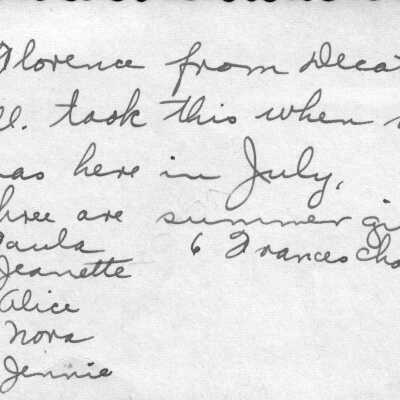 Florence from Decat
ll. took this when
as here in July,
hree are summer gi
Paula 6 Frances Cha
Jeanette
Alice
Nora
Jennie